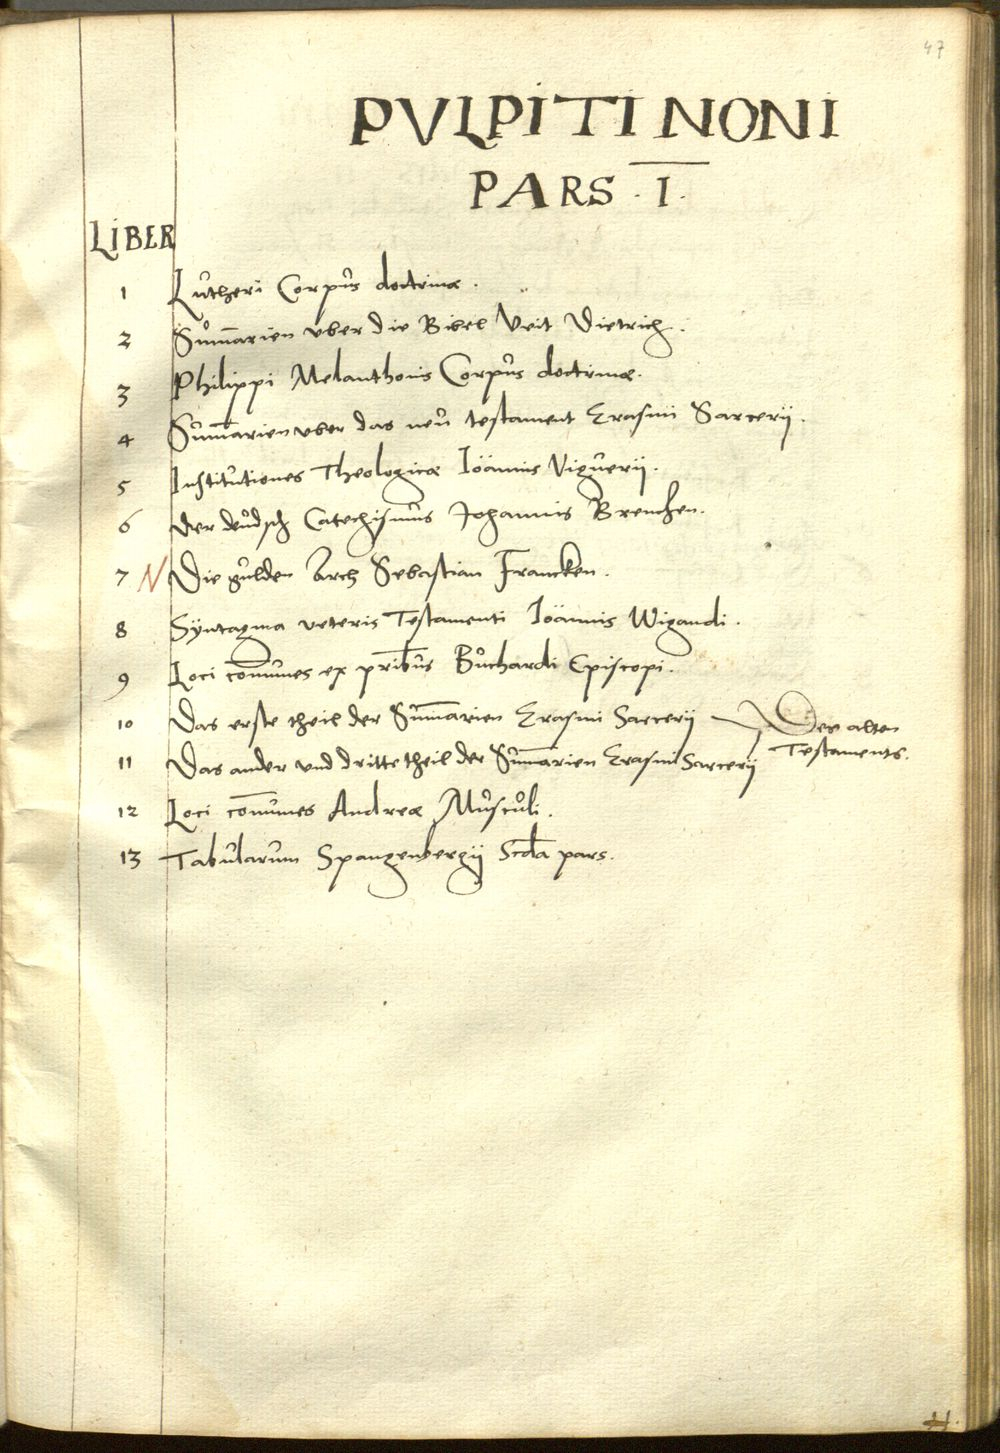 47
PVLPITI NONI
PARS . I .
LIBER
1 Lutheri Corpus doctrinæ .
2 Sum̄arien vber die Bibel Veit Dietrich .
3 Philippi Melanthonis Corpus doctrinæ .
4 Sum̄arien vber das neu testament Erasmi Sarcerij .
5 Institutiones Theologicæ Ioannis Viguerij .
6 der deudsch Catechismus Johannis Brentzen .
7 N Die gulden Arch Sebastian Francken .
8 Sÿntagma veteris Testamenti Ioannis Wigandi .
9 Loci com̄unes ex pribus Buchardi Episcopi .
10 Das erste theil der Sum̄arien Erasmi Sarcerij Des alten
11 Das ander vnd dritte theil der Sum̄arien Erasmi Sarcerij Testaments .
12 Loci com̄unes Andreæ Musculi .
13 Tabularum Spangenbergij Scda pars .